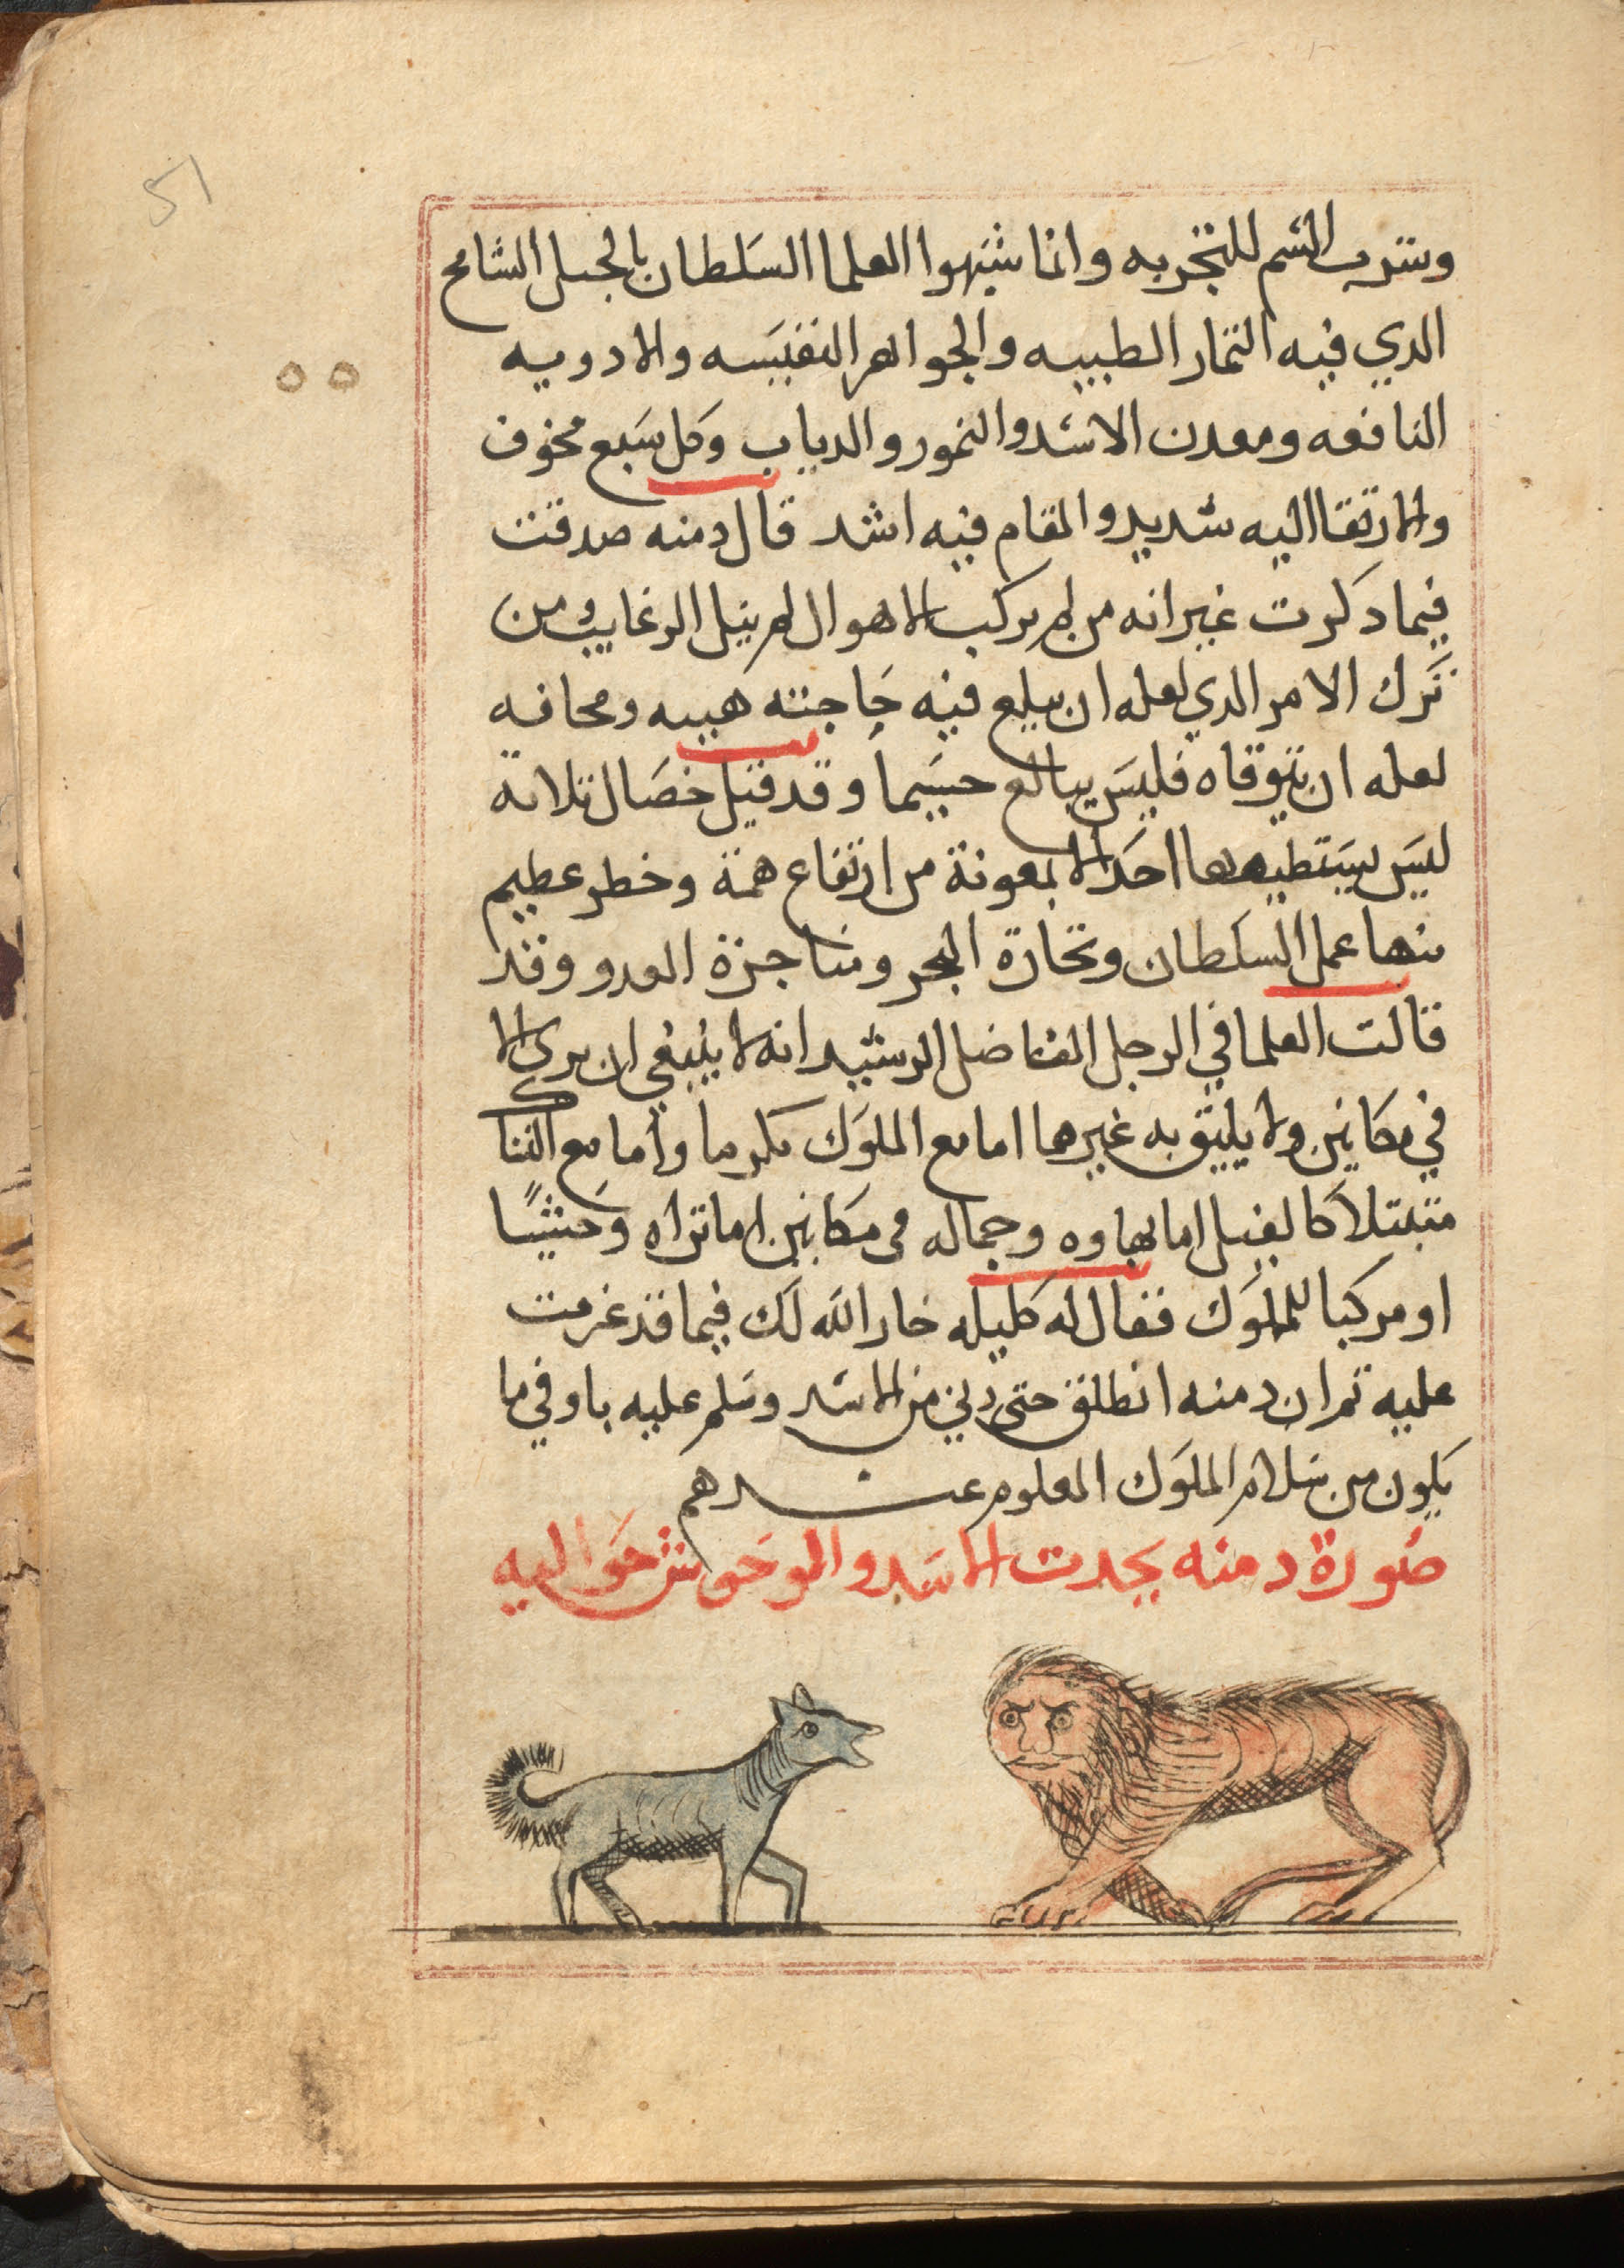 51
وشرب السم للتجربه وانما شبهوا العلما السلطان بالجبل الشامخ
الدي فيه التمار الطيبه والجواهر النفيسه والادويه
النافعه ومعدن الاسد والنمور والدياب وكل سبع مخوف
والارتقا اليه شديد والمقام فيه اشد قال دمنه صدقت
فيما دكرت غير انه من لم يركب الاهوال لم ينيل الرغايب ومن
ترك الامر الدي لعله ان يبلغ فيه حاجته هيبه ومخافه
لعله ان يتوقاه فليس ببالغ جسيما وقد قيل خصال تلاتة
ليس يستطيعها احد الا بمعونة من ارتفاع همة وخطر عظيم
منها عمل السلطان وتجارة البحر ومناجزة العدو وقد
قالت العلما في الرجل الفاضل الرشيد انه لا ينبغي ان يرى الا
في مكانين ولا يليق به غيرها اما مع الملوك مكرما واما مع النساك
متبتلا كالفيل اما بهاوه وجماله في مكانين اما تراه وحشيًا
او مركبا للملوك فقال له كليله خار الله لك فيما قد عزمت
عليه تم ان دمنه انطلق حتى دني من الاسد وسلم عليه باوفي ما
يكون من سلام الملوك المعلوم عندهم
صورة دمنه يحدت الاسد والوحوش حواليه